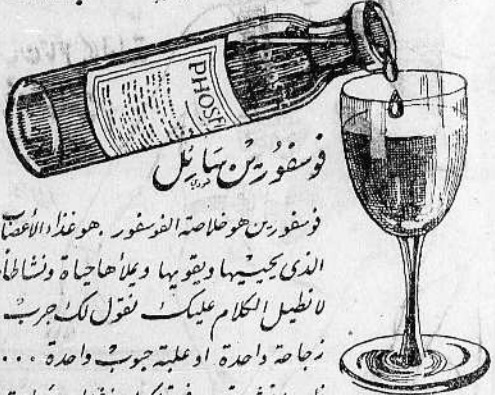 PHOSF
فوسفورين سائل
فوسفورين هو خلاصة الفوسفور . هو غذاء الأعصاب
الذى يحييها ويقويها ويملأها حياة ونشاطاً
لا نطيل الكلام عليك نقول لك جرب
زجاجة واحدة او علبة حبوب واحدة ...